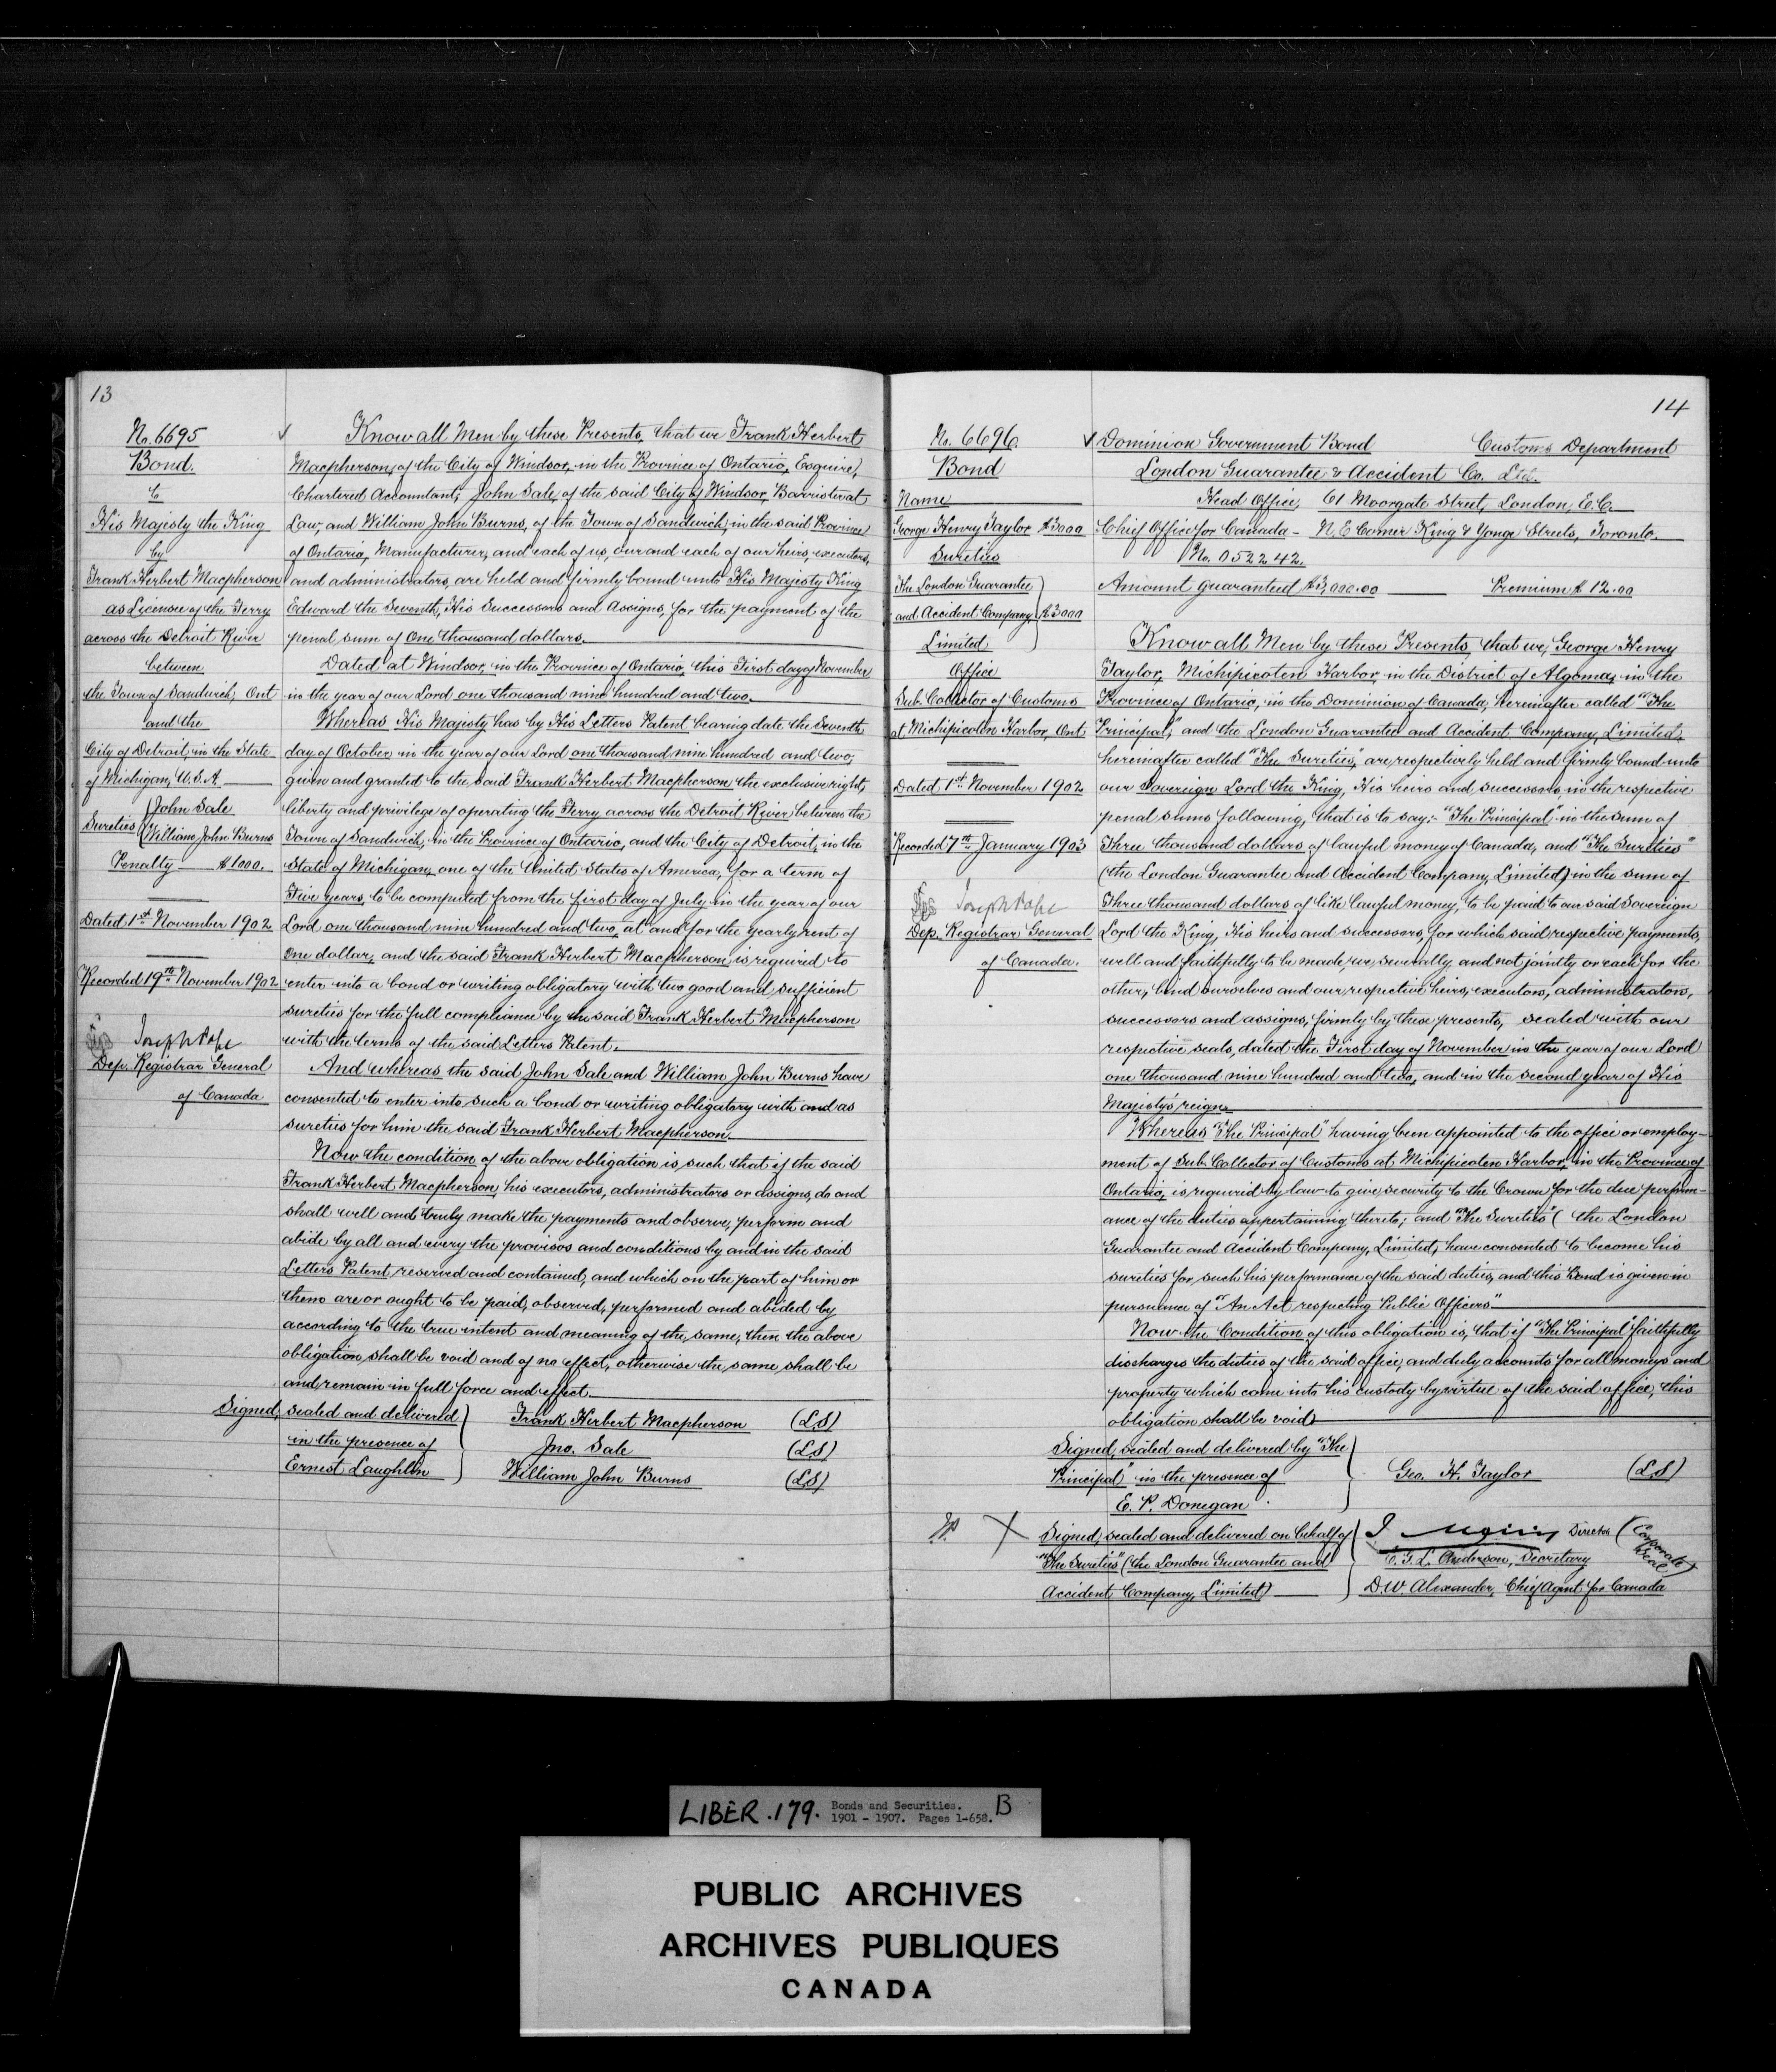 13
No. 6695
Bond.
to
His Majesty the King
by
Frank Herbert Macpherson
as Licensee of the Ferry
across the Detroit River
between
the Town of Sandwich, Ont
and the
City of Detroit, in the State
of Michigan, U.S.A.
Sureties { John Sale
William John Burns
Penalty — $1000.
Dated 1st November 1902
Recorded 19th November 1902
Joseph Pope
Dep. Registrar General
of Canada
Know all Men by these Presents, that we Frank Herbert
Macpherson, of the City of Windsor, in the Province of Ontario, Esquire,
Chartered Accountant; John Sale, of the said City of Windsor, Barrister at
Law, and William John Burns, of the Town of Sandwich, in the said Province
of Ontario, Manufacturer, and each of us, our and each of our heirs, executors,
and administrators, are held and firmly bound unto His Majesty King
Edward the Seventh, His Successors and Assigns, for the payment of the
penal sum of One thousand dollars.
Dated at Windsor, in the Province of Ontario, this First day of November
in the year of our Lord one thousand nine hundred and two.
Whereas His Majesty has by His Letters Patent bearing date the Seventh
day of October in the year of our Lord one thousand nine hundred and two,
given and granted to the said Frank Herbert Macpherson the exclusive right,
liberty and privilege of operating the Ferry across the Detroit River between the
Town of Sandwich, in the Province of Ontario, and the City of Detroit, in the
State of Michigan, one of the United States of America, for a term of
Five years, to be computed from the first day of July in the year of our
Lord one thousand nine hundred and two, at and for the yearly rent of
One dollar, and the said Frank Herbert Macpherson is required to
enter into a bond or writing obligatory with two good and sufficient
sureties for the full compliance by the said Frank Herbert Macpherson
with the terms of the said Letters Patent.
And whereas the said John Sale and William John Burns have
consented to enter into such a bond or writing obligatory with and as
sureties for him the said Frank Herbert Macpherson.
Now the condition of the above obligation is such that if the said
Frank Herbert Macpherson, his executors, administrators or assigns, do and
shall well and truly make the payments and observe, perform and
abide by all and every the provisos and conditions by and in the said
Letters Patent reserved and contained, and which on the part of him or
them are or ought to be paid, observed, performed and abided by
according to the true intent and meaning of the same, then the above
obligation shall be void and of no effect, otherwise the same shall be
and remain in full force and effect.
Signed, sealed and delivered } Frank Herbert Macpherson (L.S)
in the presence of Jno. Sale (L.S)
Ernest Laughlin William John Burns (L.S)
14
No. 6696.
Bond
Name
George Henry Taylor $3000
Sureties
The London Guarantee
and Accident Company } $3000
Limited
Office
Sub. Collector of Customs
at Michipicoten Harbor, Ont
Dated 1st November 1902
Recorded 17th January 1903
Joseph Pope
Dep. Registrar General
of Canada.
Dominion Government Bond Customs Department
London Guarantee & Accident Co. Ltd.
Head Office, 61 Moorgate Street, London, E.C.
Chief Office for Canada - N.E Corner King & Yonge Streets, Toronto.
No. 052242.
Amount guaranteed $3,000.00 Premium $12.00
Know all Men by these Presents, that we, George Henry
Taylor, Michipicoten Harbor, in the District of Algoma, in the
Province of Ontario, in the Dominion of Canada, hereinafter called "The
Principal", and the London Guarantee and Accident Company, Limited,
hereinafter called "The Sureties", are respectively held and firmly bound unto
our Sovereign Lord the King, His heirs and successors, in the respective
penal sums following, that is to say:- "The Principal" in the sum of
Three thousand dollars of lawful money of Canada, and "The Sureties"
(the London Guarantee and Accident Company, Limited) in the sum of
Three thousand dollars of like lawful money, to be paid to our said Sovereign
Lord the King, His heirs and successors, for which said respective payments,
well and faithfully to be made, we severally and not jointly or each for the
other, bind ourselves and our respective heirs, executors, administrators,
successors and assigns, firmly by these presents, sealed with our
respective seals, dated the First day of November in the year of our Lord
one thousand nine hundred and two, and in the second year of His
Majesty's reign.
Whereas "The Principal" having been appointed to the office or employ-
ment of Sub. Collector of Customs at Michipicoten Harbor, in the Province of
Ontario, is required by law to give security to the Crown for the due perform-
ance of the duties appertaining thereto; and "The Sureties" (the London
Guarantee and Accident Company, Limited, have consented to become his
sureties for such his performance of the said duties, and this Bond is given in
pursuance of "An Act respecting Public Officers"
Now the Condition of this obligation is, that if "The Principal" faithfully
discharges the duties of the said office, and duly accounts for all moneys and
property which come into his custody by virtue of the said office, this
obligation shall be void
Signed, sealed and delivered by "The
Principal" in the presence of } Geo. H. Taylor (L.S)
E. P. Donegan
Signed, sealed and delivered on behalf of } Director (Corporate Seal)
"The Sureties" (the London Guarantee and C.G.L. Anderson, Secretary
Accident Company, Limited) D.W Alexander, Chief Agent for Canada
LIBER .179. Bonds and Securities. B
1901 - 1907. Pages 1-658.
PUBLIC ARCHIVES
ARCHIVES PUBLIQUES
CANADA